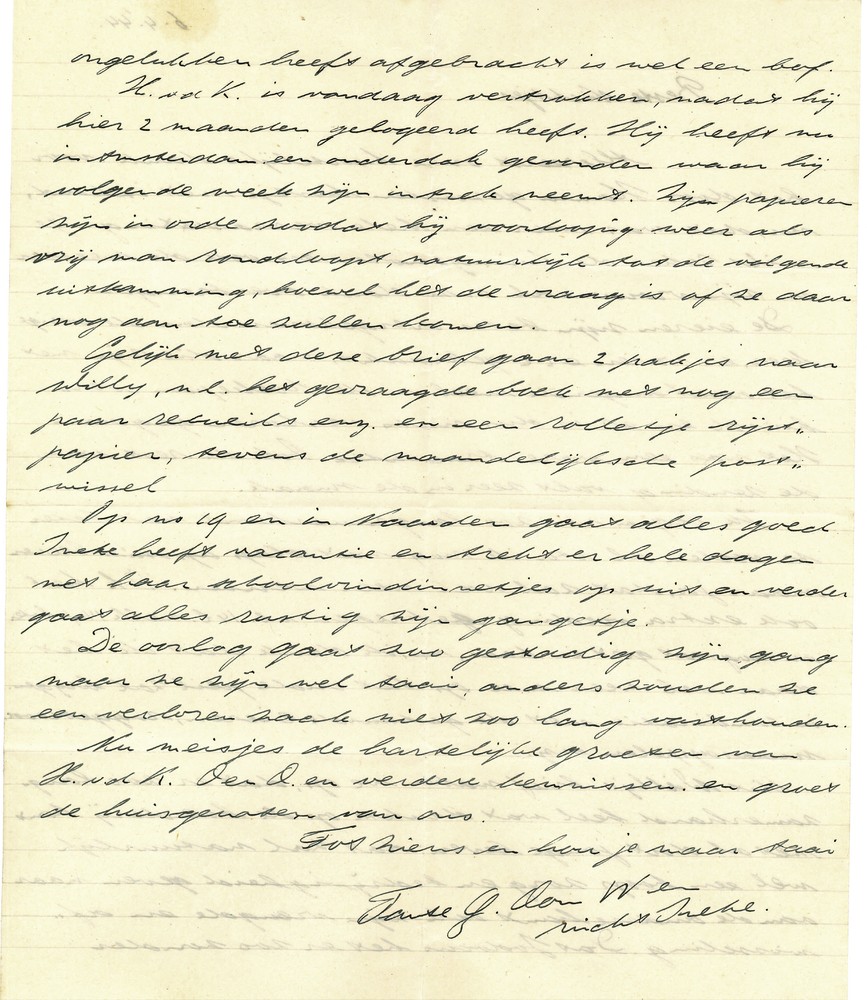 ongelukken heeft afgebracht is wel een bof.
H. v d K. is vandaag vertrokken, nadat hij
hier 2 maanden gelogeerd heeft. Hij heeft nu
in Amsterdam een onderdak gevonden waar hij
volgende week zijn intrek neemt. Zijn papieren
zijn in orde zoodat hij voorloopig weer als
vrij man rondloopt, natuurlijk tot de volgende
uitkamming, hoewel het de vraag is of ze daar
nog aan toe zullen komen.
Gelijk met deze brief gaan 2 pakjes naar
Willy, n.l. het gevraagde boek met nog een
paar recueils enz. en een rolletje rijst„
papier, tevens de maandelijksche post„
wissel
Op no 19 en in Naarden gaat alles goed
Ineke heeft vacantie en trekt er hele dagen
met haar schoolvriendinnetjes op uit en verder
gaat alles rustig zijn gangetje.
De oorlog gaat zoo gestadig zijn gang
maar ze zijn wel taai, anders zouden ze
een verloren zaak niet zoo lang vasthouden.
Nu meisjes de hartelijke groeten van
H. v d K. O en O. en verdere kennissen. en groet
de huisgenoten van ons.
Tot ziens en hou je maar taai
Tante G. Oom W en
nicht Ineke.